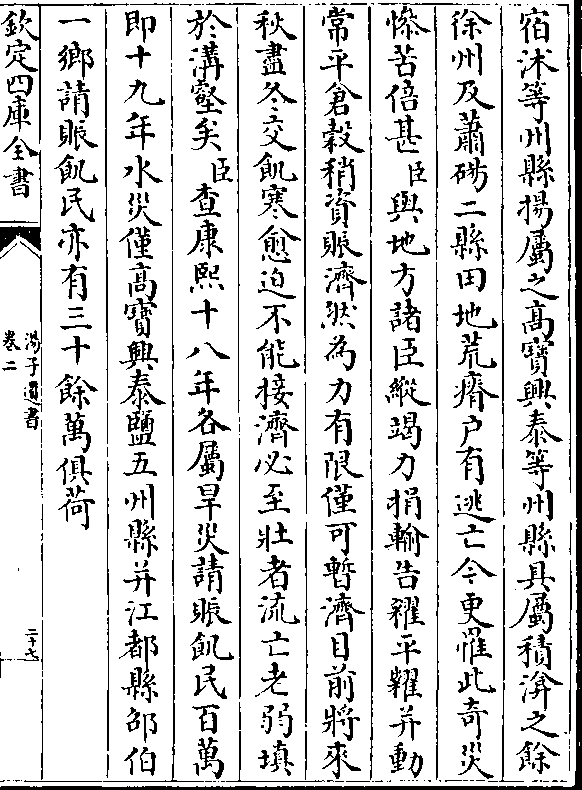 宿沭等州縣揚屬之高寶興泰等州縣具屬積渰之餘
徐州及蕭碭二縣田地荒瘠户有逃亡今更罹此奇災
慘苦倍甚臣與地方諸臣縱竭力捐輸告糴平糶并動
常平倉穀稍資賑濟然為力有限僅可暫濟目前將來
秋盡冬交飢寒愈迫不能接濟必至壯者流亡老弱填
於溝壑矣臣查康熙十八年各屬旱災請賑飢民百萬
即十九年水災僅高寶興泰鹽五州縣并江都縣邵伯
一鄉請賑飢民亦有三十餘萬俱荷
欽定四庫全書
湯子遺書
卷二
二十七